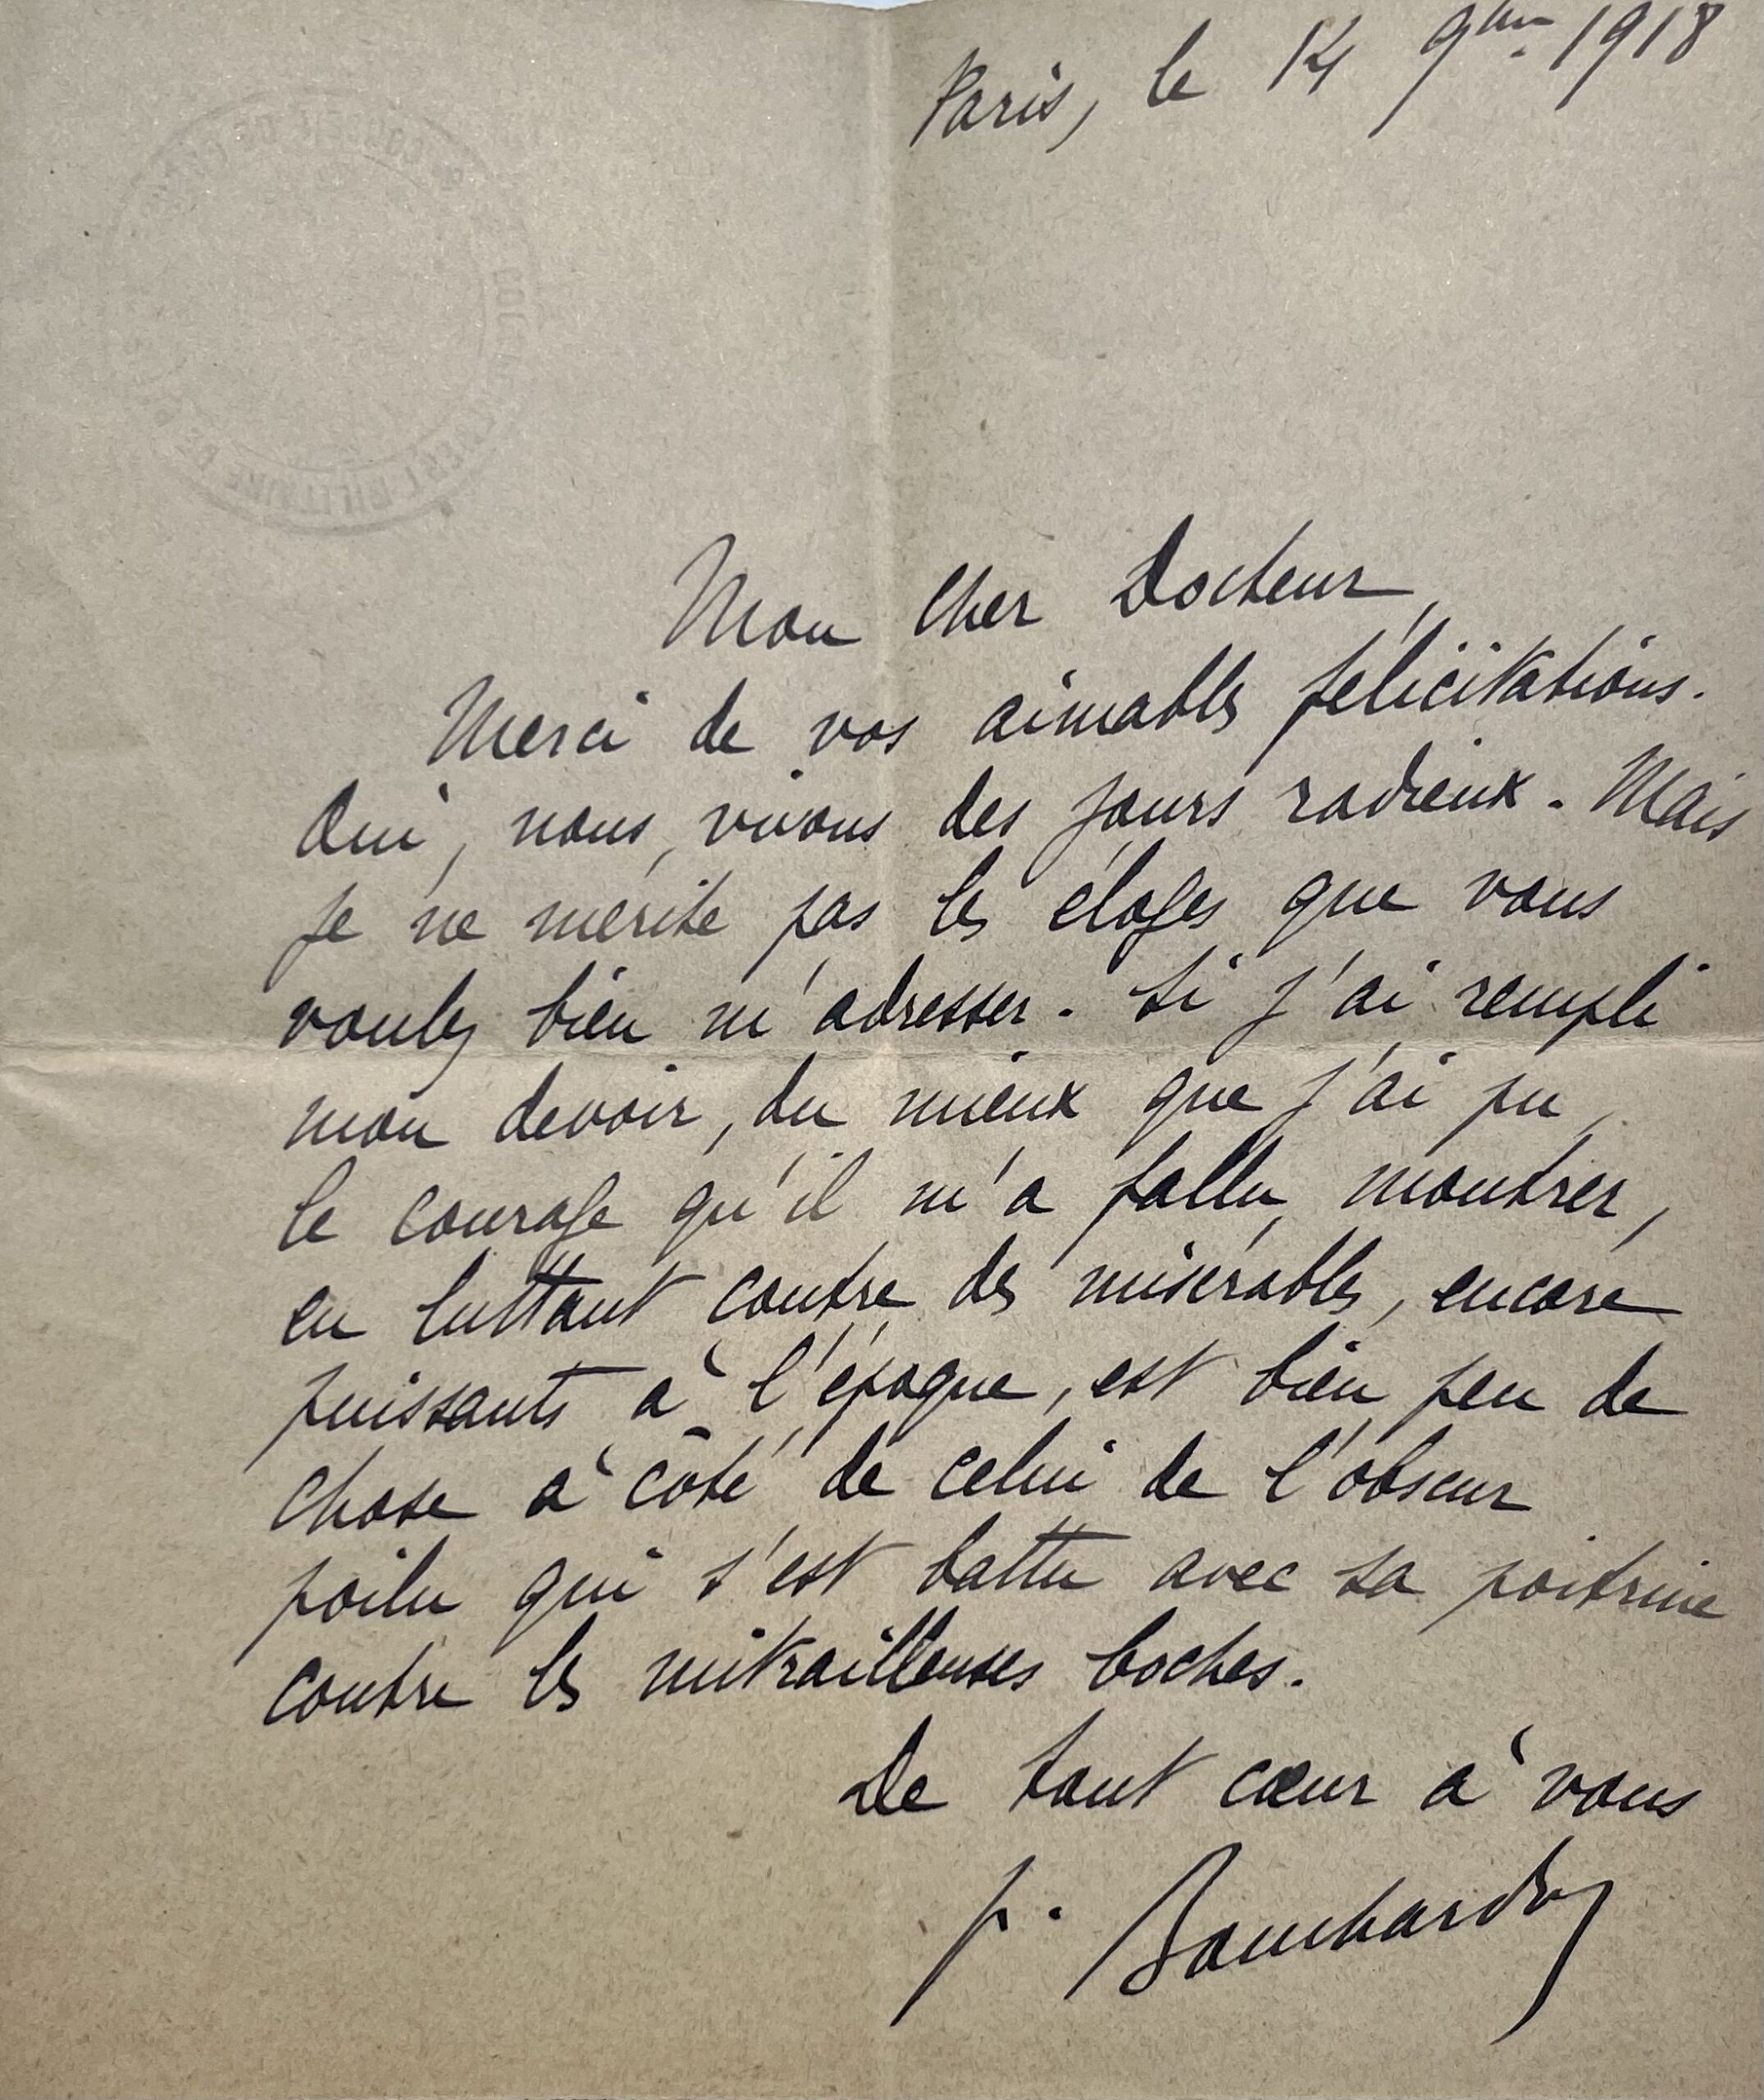 Paris, le 14 9bre 1918
Mon cher Docteur,
Merci de vos aimables félicitations.
Oui, nous vivons des jours radieux. Mais
je ne mérite pas les éloges que vous
voulez bien m'adresser. Si j'ai rempli
mon devoir, du mieux que j'ai pu,
le courage qu'il m'a fallu montrer,
en luttant contre des misérables, encore
puissants à l'époque, est bien peu de
chose à côté de celui de l'obscur
poilu qui s'est battu avec sa poitrine
contre les mitrailleuses boches.
De tout cœur à vous
P. Bouchardon